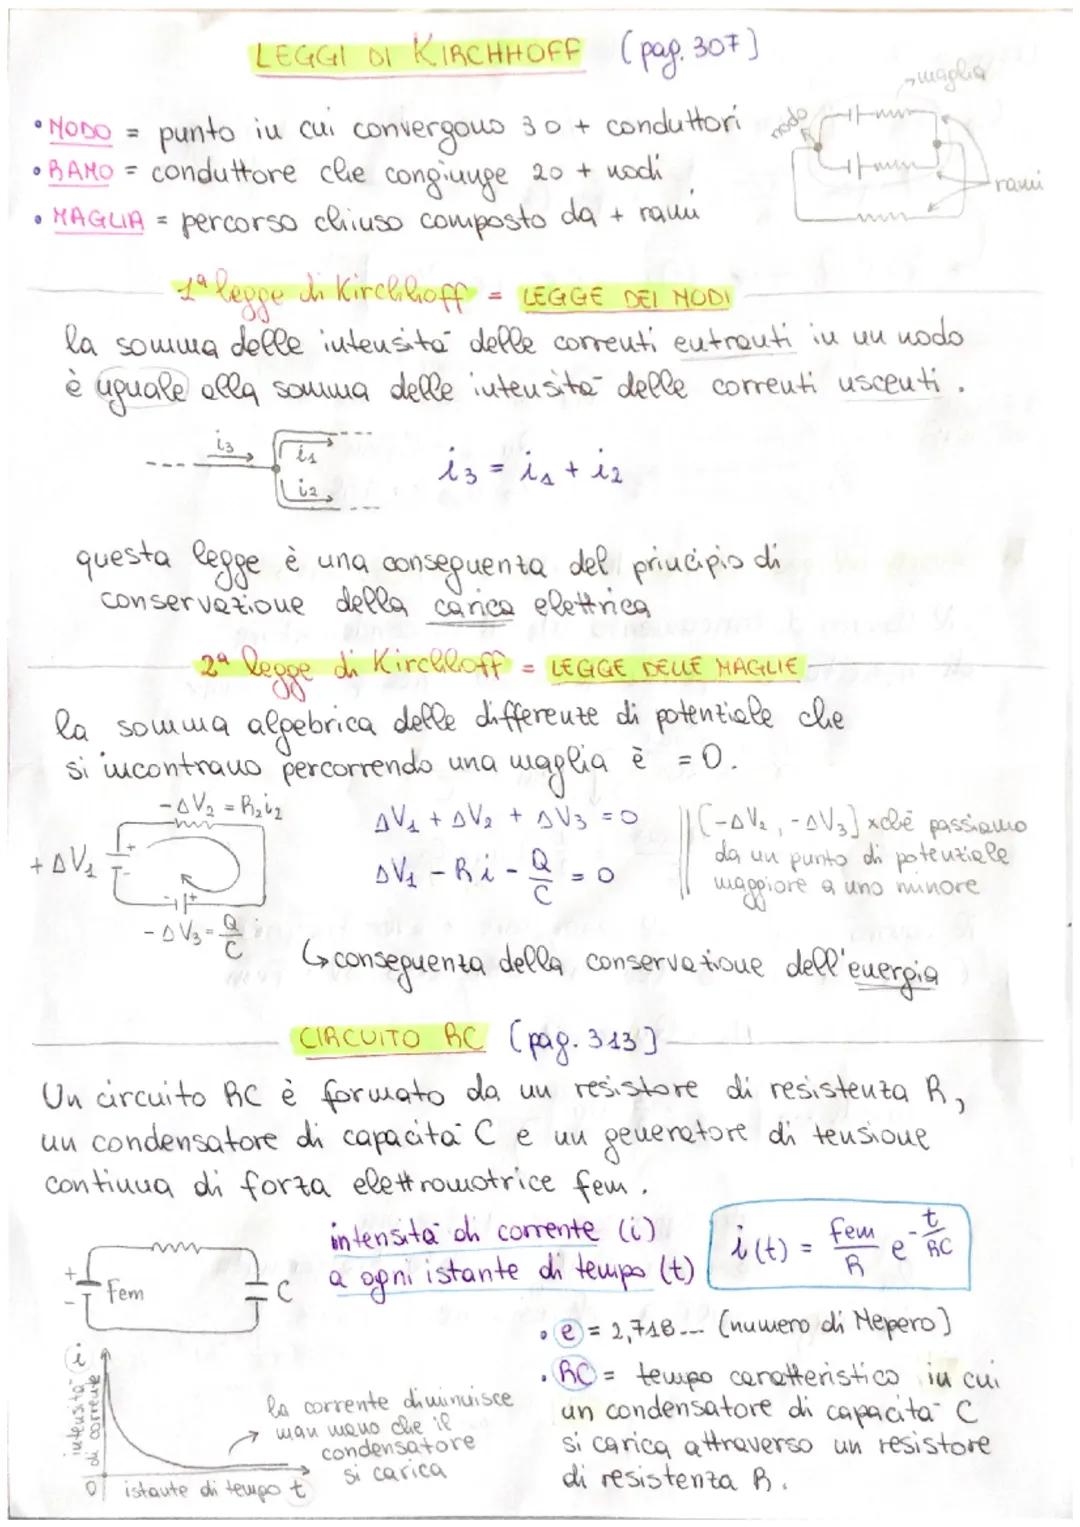 LEGGI DI KIRCHHOFF (pag. 307)
maglia
nodo
rami
• NODO = punto in cui convergono 3 o + conduttori
• RAMO = conduttore che congiunge 2 o + nodi
• MAGLIA = percorso chiuso composto da + rami
1ª legge di Kirchhoff = LEGGE DEI NODI
la somma delle intensità delle correnti entranti in un nodo
è uguale alla somma delle intensità delle correnti uscenti.
i3 i1 i2
i3 = i1 + i2
questa legge è una conseguenza del principio di
conservazione della carica elettrica
2ª legge di Kirchhoff = LEGGE DELLE MAGLIE
la somma algebrica delle differenze di potenziale che
si incontrano percorrendo una maglia è = 0.
-ΔV2 = R2i2
+ ΔV1
+ -
- +
- ΔV3 = Q/C
ΔV1 + ΔV2 + ΔV3 = 0
ΔV1 - Ri - Q/C = 0
(-ΔV2, -ΔV3) xchè passiamo
da un punto di potenziale
maggiore a uno minore
↳ conseguenza della conservazione dell'energia
CIRCUITO RC (pag. 313)
Un circuito RC è formato da un resistore di resistenza R,
un condensatore di capacità C e un generatore di tensione
continua di forza elettromotrice fem.
+ - fem C
intensità di corrente (i)
a ogni istante di tempo (t)
i(t) = fem/R e^-t/RC
• e = 2,718... (numero di Nepero)
• RC = tempo caratteristico in cui
un condensatore di capacità C
si carica attraverso un resistore
di resistenza R.
intensità i
di corrente
la corrente diminuisce
man mano che il
condensatore
si carica
0 istante di tempo t